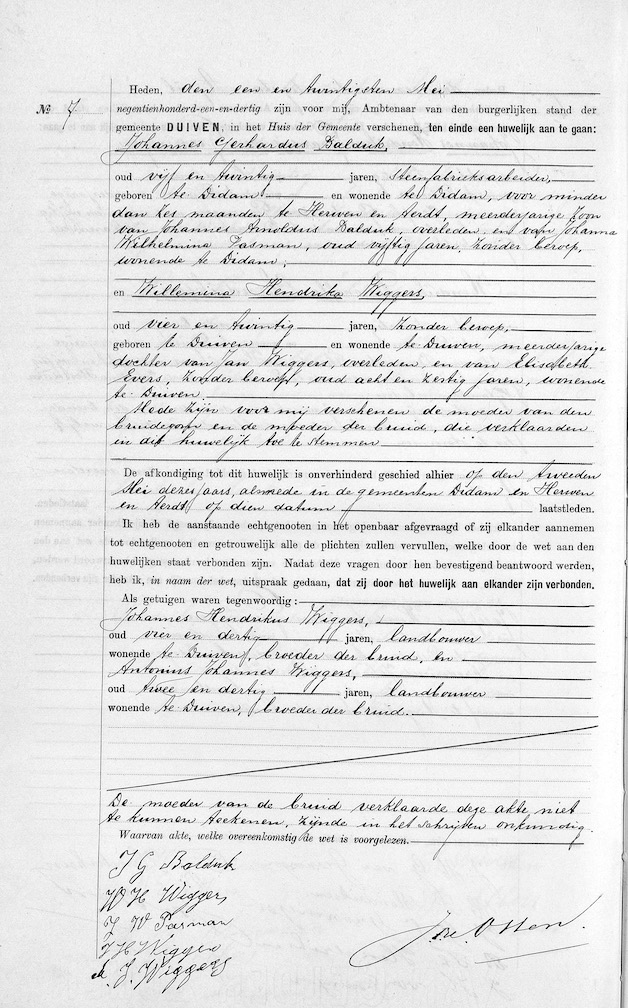 Heden, den een en twintigsten Mei
No 7 negentienhonderd-een-en-dertig zijn voor mij, Ambtenaar van den burgerlijken stand der
gemeente DUIVEN, in het Huis der Gemeente verschenen, ten einde een huwelijk aan te gaan:
Johannes Gerhardus Balduk,
oud vijf en twintig jaren, steenfabrieksarbeider,
geboren te Didam en wonende te Didam, voor minder
dan zes maanden te Herwen en Aerdt, meerderjarige zoon
van Johannes Arnoldus Balduk, overleden, en van Johanna
Wilhelmina Pasman, oud vijftig jaren, zonder beroep,
wonende te Didam;
en Willemina Hendrika Wiggers,
oud vier en twintig jaren, zonder beroep,
geboren te Duiven en wonende te Duiven, meerderjarige
dochter van Jan Wiggers, overleden en van Elisabeth
Evers, zonder beroep, oud acht en zestig jaren, wonende
te Duiven.
Mede zijn voor mij verschenen de moeder van den
bruidegom en de moeder der bruid, die verklaarden
in dit huwelijk toe te stemmen
De afkondiging tot dit huwelijk is onverhinderd geschied alhier op den tweeden
Mei dezes jaars, alsmede in de gemeenten Didam en Herwen
en Aerdt op dien datum laatstleden.
Ik heb de aanstaande echtgenooten in het openbaar afgevraagd of zij elkander aannemen
tot echtgenooten en getrouwelijk alle de plichten zullen vervullen, welke door de wet aan den
huwelijken staat verbonden zijn. Nadat deze vragen door hen bevestigend beantwoord werden,
heb ik, in naam der wet, uitspraak gedaan, dat zij door het huwelijk aan elkander zijn verbonden.
Als getuigen waren tegenwoordig:
Johannes Hendrikus Wiggers,
oud vier en dertig jaren, landbouwer
wonende te Duiven, broeder der bruid, en
Antonius Johannes Wiggers,
oud twee en dertig jaren, landbouwer
wonende te Duiven, broeder der bruid.
De moeder van de bruid verklaarde deze akte niet
te kunnen teekenen, zijnde in het schrijven onkundig.
Waarvan akte, welke overeenkomstig de wet is voorgelezen.
J G Balduk
W H Wiggers
J W Pasman
J H Wiggers
A. J. Wiggers